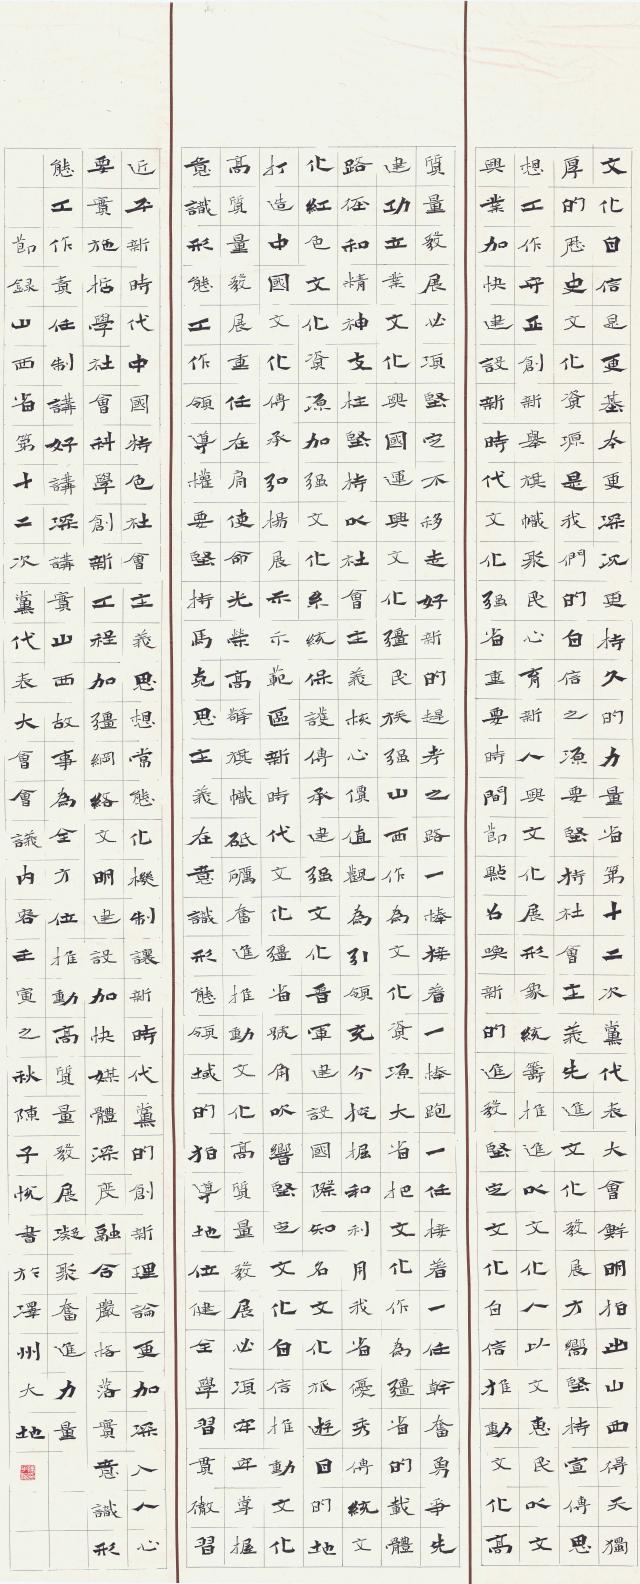 文化自信是更基本更深沉更持久的力量省第十二次黨代表大會鮮明指出山西得天獨
厚的歷史文化資源是我們的自信之源要堅持社會主義先進文化發展方嚮堅持宣傳思
想工作守正創新舉旗幟聚民心育新人興文化展形象統籌推進以文化人以文惠民以文
興業加快建設新時代文化强省重要時間節點召喚新的進發堅定文化自信推動文化高
質量發展必須堅定不移走好新的趕考之路一棒接着一棒跑一任接着一任幹奮勇爭先
建功立業文化興國運興文化疆民族强山西作為文化資源大省把文化作為疆省的載體
路徑和精神支柱堅持以社會主義核心價值觀為引領充分挖掘和利用我省優秀傳統文
化紅色文化資源加强文化系統保護傳承建强文化晋軍建設國際知名文化旅遊目的地
打造中國文化傳承弘揚展示示範區新時代文化疆省號角吹響堅定文化自信推動文化
高質量發展重任在肩使命光榮高舉旗幟砥礪奮進推動文化高質量發展必須牢牢掌握
意識形態工作領導權要堅持馬克思主義在意識形態領域的指導地位健全學習貫徹習
近平新時代中國特色社會主義思想常態化機制讓新時代黨的創新理論更加深入人心
要實施哲學社會科學創新工程加疆網絡文明建設加快媒體深度融合嚴格落實意識形
態工作責任制講好講深講實山西故事為全方位推動高質量發展凝聚奮進力量
節録山西省第十二次黨代表大會會議內容壬寅之秋陳子悦書於澤州大地